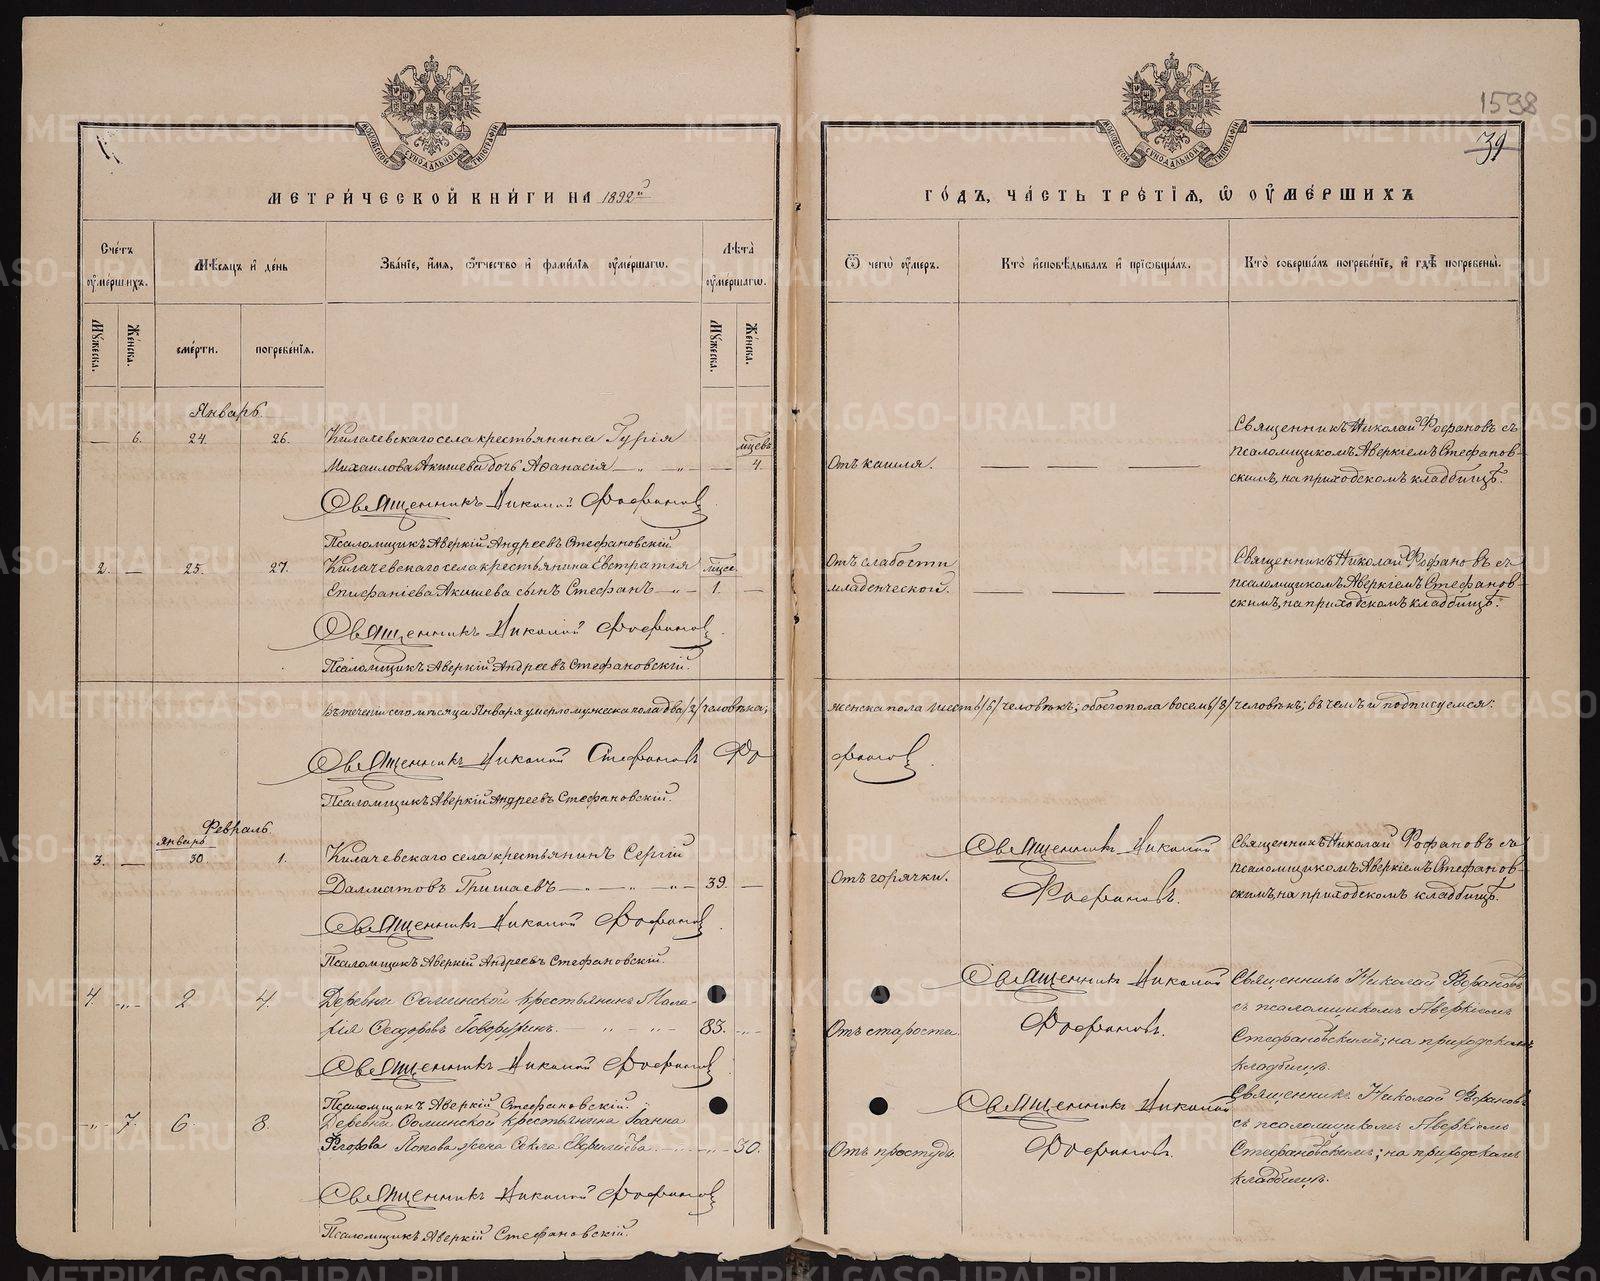 1598
39
МЕТРИ́ЧЕСКОЙ КНИ́ГИ НА 1892й
ГО́ДЪ, ЧА́СТЬ ТРЕ́ТІѦ, Ѿ ОУ҆МЕ́РШИХЪ
МОСКОВСКОЙ СѴНОДАЛЬНОЙ ТИПОГРАФІИ
МОСКОВСКОЙ СѴНОДАЛЬНОЙ ТИПОГРАФІИ
Сче́тъ оу҆ме́ршихъ.
Мѣ́сѧцъ и҆ де́нь
Зва́нїе, и҆́мѧ, ѻ҆́тчество и҆ фами́лїѧ оу҆ме́ршагѡ.
Лѣ́та оу҆ме́ршагѡ.
Ѿ чегѡ̀ оу҆́меръ.
Кто̀ и҆сповѣ́дывалъ и҆ прїѡбща́лъ.
Кто̀ соверша́лъ погребе́нїе, и҆ гдѣ̀ погребены̀.
Мꙋ́жеска.
Же́нска.
сме́рти.
погребе́нїѧ.
Мꙋ́жеска.
Же́нска.
Январь.
— 6. 24. 26. Килачевскаго села крестьянина Гурія
Михаилова Акишева дочь Аѳанасія — „ — „ — — мцевъ 4
Священникъ Николай Фофановъ
Псаломщикъ Аверкій Андреевъ Стефановскій.
Отъ кашля. — — —
Священникъ Николай Фофановъ съ
псаломщикомъ Аверкіемъ Стефанов-
скимъ, на приходскомъ кладбищѣ.
2. — 25. 27. Килачевскаго села крестьянина Евстратія
Епифаніева Акишева сынъ Стефанъ — „ — 1. —
Священникъ Николай Фофановъ
Псаломщикъ Аверкій Андреевъ Стефановскій.
Отъ слабости
младенческой. — — —
Священникъ Николай Фофановъ съ
псаломщикомъ Аверкіемъ Стефанов-
скимъ, на приходскомъ кладбищѣ.
Въ теченіи сего мѣсяца Января умерло мужеска пола два /2/ человѣка;
женска пола шесть /6/ человѣкъ; обоего пола восемь /8/ человѣкъ; въ чемъ и подписуемся:
Священникъ Николай Стефановъ Фо
фановъ.
Псаломщикъ Аверкій Андреевъ Стефановскій.
Февраль.
Январь
3. — 30 1. Килачевскаго села крестьянинъ Сергій
Далматовъ Гришаевъ — „ — „ — „ — 39. —
Священникъ Николай Фофановъ
Псаломщикъ Аверкій Андреевъ Стефановскій.
Отъ горячки.
Священникъ Николай
Фофановъ.
Священникъ Николай Фофановъ съ
псаломщикомъ Аверкіемъ Стефанов-
скимъ, на приходскомъ кладбищѣ.
4. -„- 2 4. Деревни Соминской крестьянинъ Мала-
фія Ѳеодоровъ — „ — „ — 83. -„-
Священникъ Николай Фофановъ
Псаломщикъ Аверкій Стефановскій.
Отъ старости.
Священникъ Николай
Фофановъ.
Священникъ Николай Фофановъ
съ псаломщикомъ Аверкіемъ
Стефановскимъ; на приходскомъ
кладбищѣ.
-„- 7. 6. 8. Деревни Соминской крестьянина Іоанна
Егорова Попова жена Ѳекла -„- 30.
Священникъ Николай Фофановъ
Псаломщикъ Аверкій Стефановскій.
Отъ простуды.
Священникъ Николай
Фофановъ.
Священникъ Николай Фофановъ
съ псаломщикомъ Аверкіемъ
Стефановскимъ; на приходскомъ
кладбищѣ.